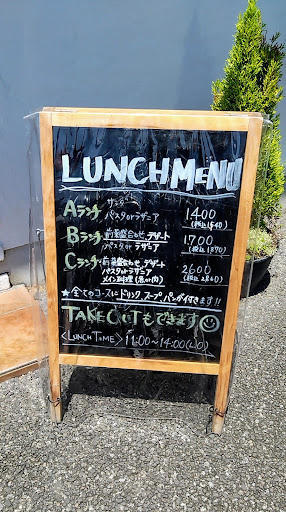 LUNCH MENU
Aランチ サラダ 1400
パスタorラザニア (税込1540)
Bランチ 前菜盛合わせ デザート 1700
パスタorラザニア (税込1870)
Cランチ 前菜盛合わせ デザート 2600
パスタorラザニア (税込2860)
メイン料理(魚or肉)
★全てのコースにドリンク、スープ、パンが付きます!!
TAKEOUTもできます
<LUNCH TIME> 11:00〜14:00(LO)